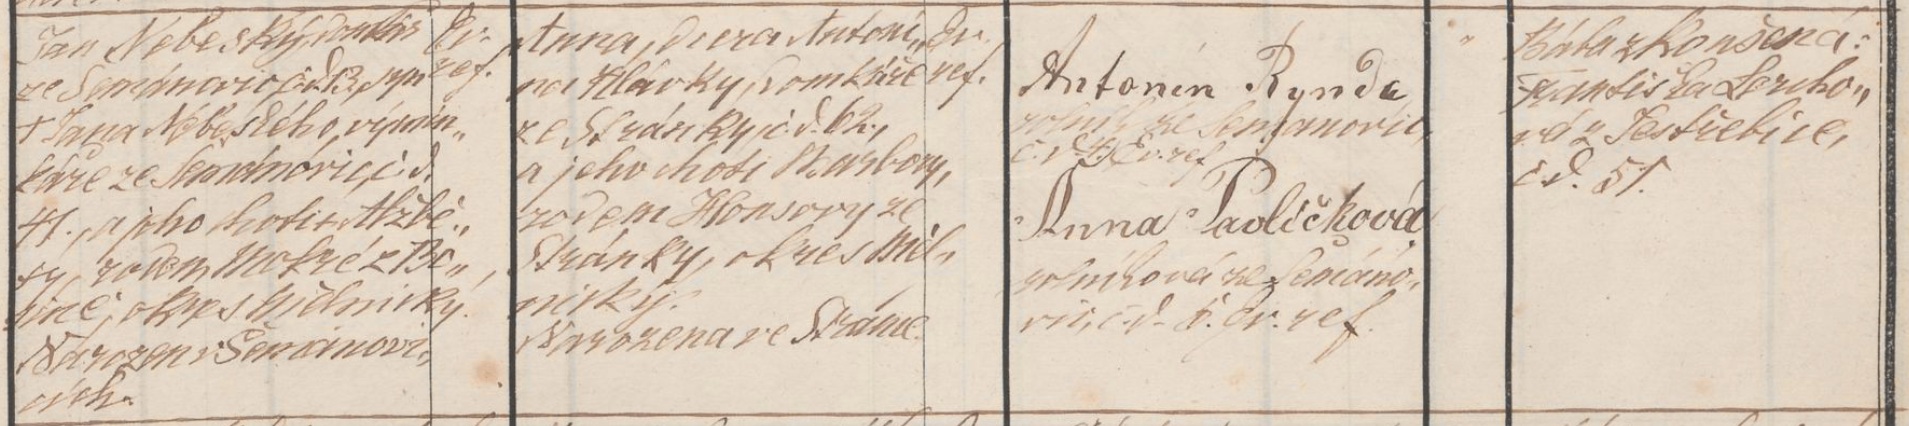 Jan Nebeský, domkář
ze Semánovic č. d. 13, syn
† Jana Nebeského, výmin„
káře ze Semánovic, č. d.
41., a jeho choti † Alžbě„
ty, rodem Mokré z Bo„
řice, okres Mělnický.
Narozen v Šemánovi„
cích.
Ev.
ref.
Anna, dcera Antoní„
na Hlávky, domkáře
ze Stránky, č. d. 62.,
a jeho choti Barbory,
rodem Honsovy ze
Stránky, okres Měl„
nický.
Narozena ve Stránce.
Ev.
ref.
Antonín Rynda
rolník ze Semanovic,
č. d. Ev. ref.
Anna Pavlíčková
rolníková ze Semáno„
vic, č. d. 6. Ev. ref.
"
Bába zkoušená:
Františka Lercho„
vá z Jestřebice,
č. d. 51.